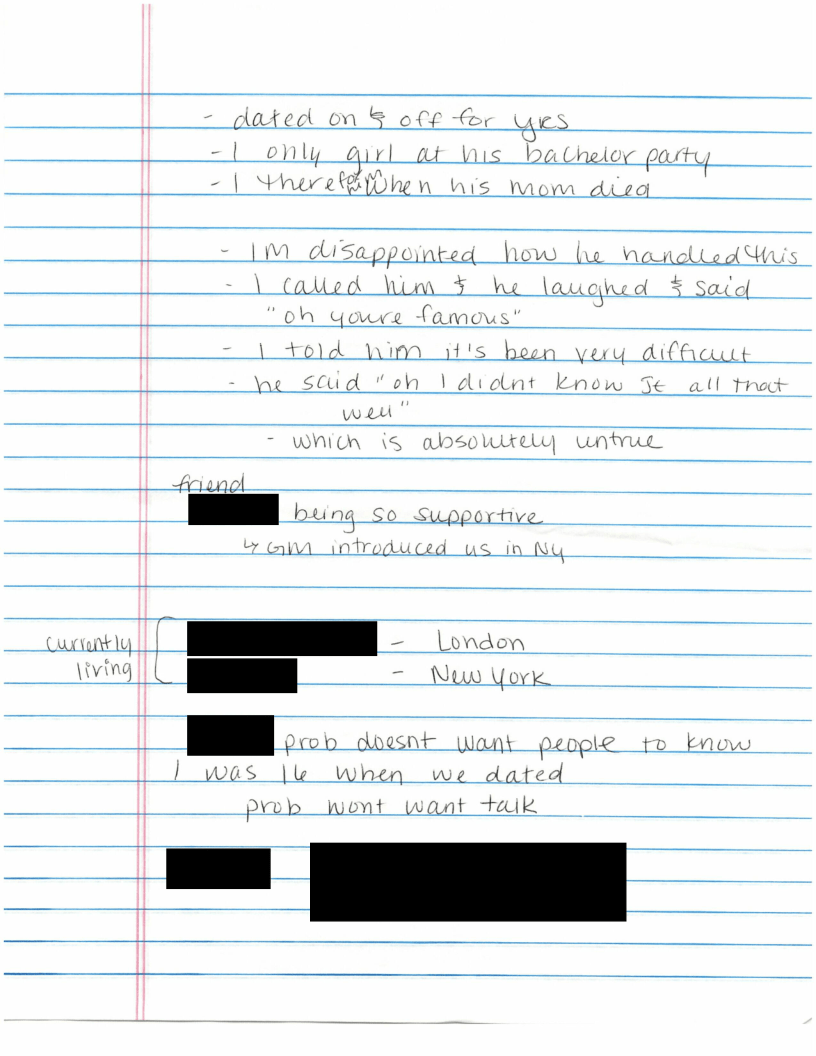 - dated on & off for yrs
- I only girl at his bachelor party
- I there for him when his mom died
- IM disappointed how he handled this
- I called him & he laughed & said
"oh youre famous"
- I told him it's been very difficult
- he said "oh I didnt know JE all that
well"
- which is absolutely untrue
friend
being so supportive
↳ GM introduced us in NY
currently
living
- London
- New York
prob doesnt want people to know
I was 16 when we dated
prob wont want talk